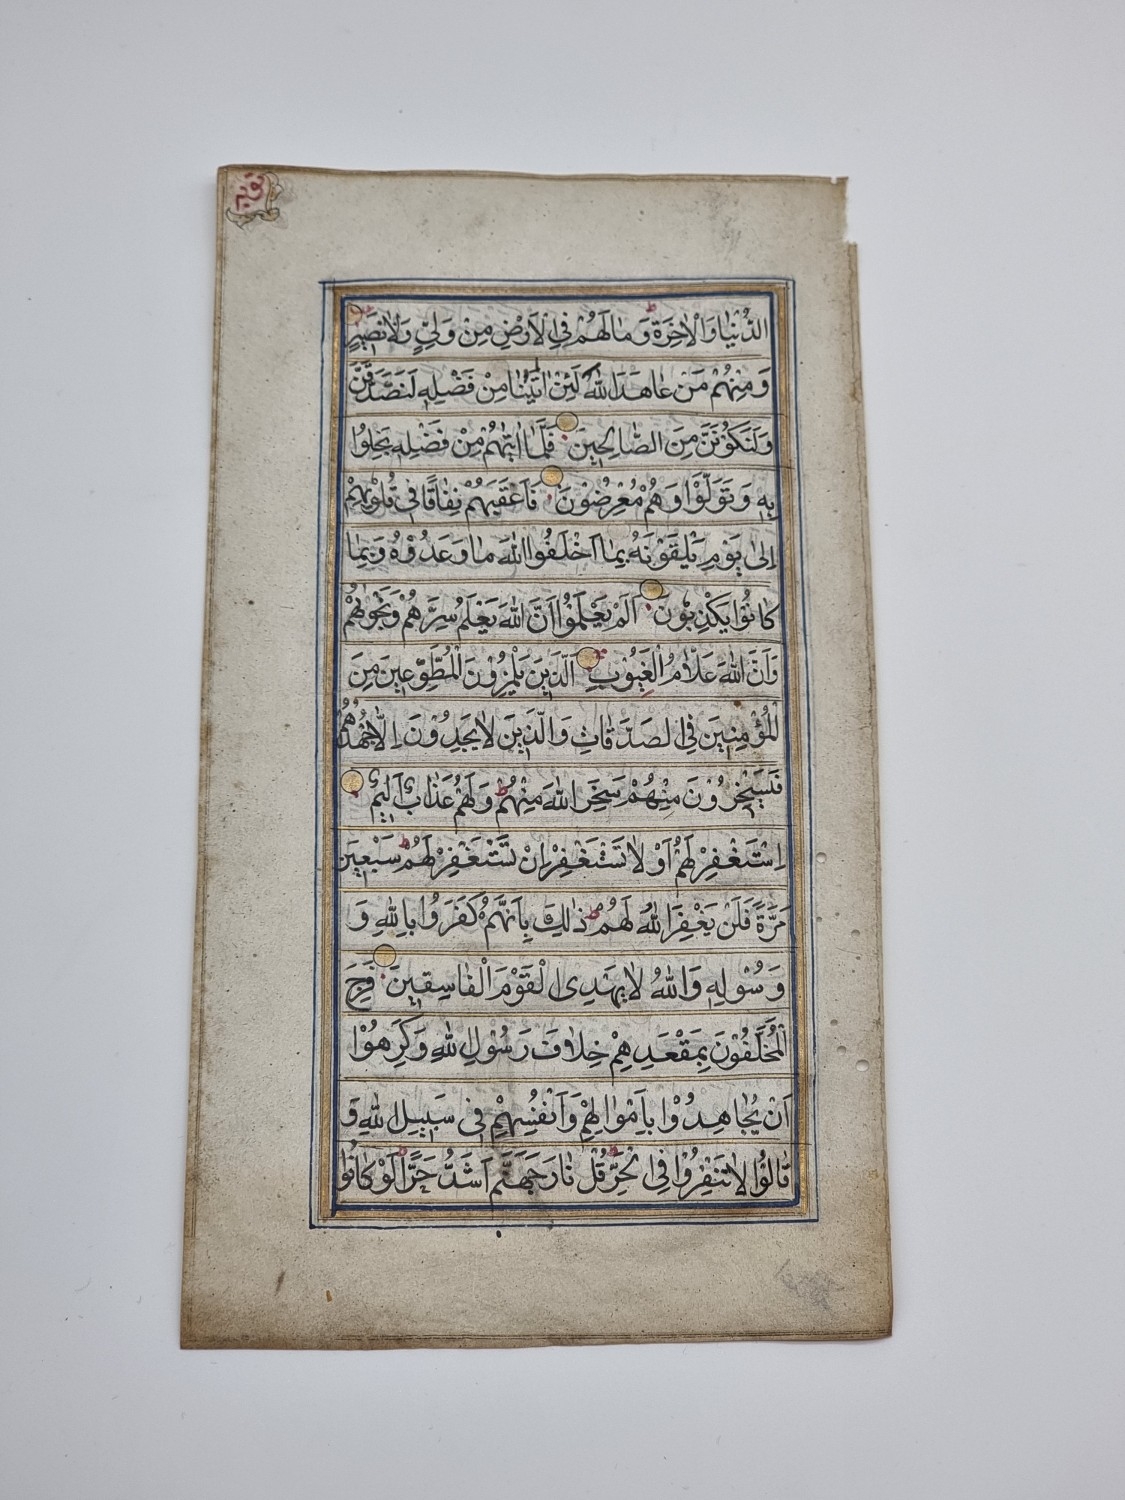 توبه
الدُّنْيَا وَالْاٰخِرَةِ وَمَا لَهُمْ فِي الْاَرْضِ مِنْ وَلِيٍّ وَلَا نَصِيرٍ
وَمِنْهُمْ مَنْ عَاهَدَ اللّٰهَ لَئِنْ اٰتٰينَا مِنْ فَضْلِهِ لَنَصَّدَّقَنَّ
وَلَنَكُونَنَّ مِنَ الصَّالِحِينَ فَلَمَّا اٰتٰيهُمْ مِنْ فَضْلِهِ بَخِلُوا
بِهِ وَتَوَلَّوْا وَهُمْ مُعْرِضُونَ فَاَعْقَبَهُمْ نِفَاقًا فِي قُلُوبِهِمْ
اِلٰى يَوْمِ يَلْقَوْنَهُ بِمَا اَخْلَفُوا اللّٰهَ مَا وَعَدُوهُ وَبِمَا
كَانُوا يَكْذِبُونَ اَلَمْ يَعْلَمُوا اَنَّ اللّٰهَ يَعْلَمُ سِرَّهُمْ وَنَجْوٰيهُمْ
وَاَنَّ اللّٰهَ عَلَّامُ الْغُيُوبِ اَلَّذِينَ يَلْمِزُونَ الْمُطَّوِّعِينَ مِنَ
الْمُؤْمِنِينَ فِي الصَّدَقَاتِ وَالَّذِينَ لَا يَجِدُونَ اِلَّا جُهْدَهُمْ
فَيَسْخَرُونَ مِنْهُمْ سَخِرَ اللّٰهُ مِنْهُمْ وَلَهُمْ عَذَابٌ اَلِيمٌ
اِسْتَغْفِرْ لَهُمْ اَوْ لَا تَسْتَغْفِرْ اِنْ تَسْتَغْفِرْ لَهُمْ سَبْعِينَ
مَرَّةً فَلَنْ يَغْفِرَ اللّٰهُ لَهُمْ ذٰلِكَ بِاَنَّهُمْ كَفَرُوا بِاللّٰهِ وَ
رَسُولِهِ وَاللّٰهُ لَا يَهْدِى الْقَوْمَ الْفَاسِقِينَ فَرِحَ
الْمُخَلَّفُونَ بِمَقْعَدِهِمْ خِلَافَ رَسُولِ اللّٰهِ وَكَرِهُوا
اَنْ يُجَاهِدُوا بِاَمْوَالِهِمْ وَاَنْفُسِهِمْ فِي سَبِيلِ اللّٰهِ وَ
قَالُوا لَا تَنْفِرُوا فِي الْحَرِّ قُلْ نَارُ جَهَنَّمَ اَشَدُّ حَرًّا لَوْ كَانُوا